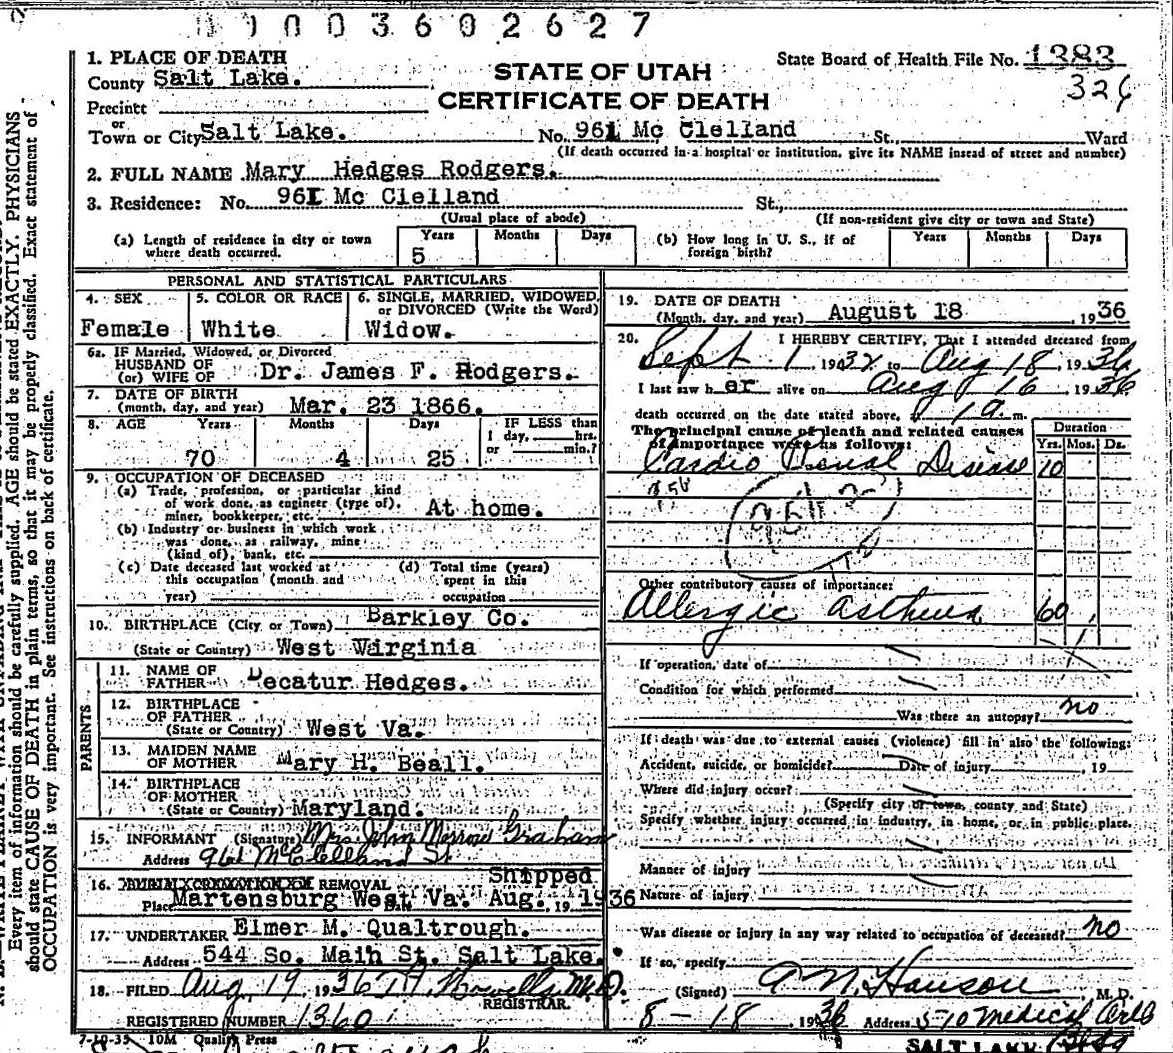 0003602627
1. PLACE OF DEATH
State Board of Health File No. 1383
County Salt Lake.
STATE OF UTAH
326
Precinct
CERTIFICATE OF DEATH
or
Town or City Salt Lake. No. 961 Mc Clelland St., Ward
(If death occurred in a hospital or institution, give its NAME instead of street and number)
2. FULL NAME Mary Hedges Rodgers.
3. Residence: No. 961 Mc Clelland St.,
(Usual place of abode) (If non-resident give city or town and State)
(a) Length of residence in city or town where death occurred. Years 5 Months Days
(b) How long in U. S., if of foreign birth? Years Months Days
PERSONAL AND STATISTICAL PARTICULARS
4. SEX Female
5. COLOR OR RACE White
6. SINGLE, MARRIED, WIDOWED, or DIVORCED (Write the Word) Widow.
6a. IF Married, Widowed, or Divorced
HUSBAND OF
(or) WIFE OF Dr. James F. Rodgers.
7. DATE OF BIRTH
(month, day, and year) Mar. 23 1866.
8. AGE Years 70 Months 4 Days 25
IF LESS than
1 day, hrs.
or min.?
9. OCCUPATION OF DECEASED
(a) Trade, profession, or particular kind
of work done, as engineer (type of),
miner, bookkeeper, etc. At home.
(b) Industry or business in which work
was done, as railway, mine
(kind of), bank, etc.
(c) Date deceased last worked at
this occupation (month and
year)
(d) Total time (years)
spent in this
occupation
10. BIRTHPLACE (City or Town) Barkley Co.
(State or Country) West Wirginia
PARENTS
11. NAME OF
FATHER Decatur Hedges.
12. BIRTHPLACE
OF FATHER
(State or Country) West Va.
13. MAIDEN NAME
OF MOTHER Mary H. Beall.
14. BIRTHPLACE
OF MOTHER
(State or Country) Maryland.
15. INFORMANT (Signature) Mrs John Morrow Graham
Address 961 McClelland St
16. BURIAL CREMATION OR REMOVAL Shipped
Place Martensburg West Va. Date Aug. 19 1936
17. UNDERTAKER Elmer M. Qualtrough.
Address 544 So. Main St. Salt Lake.
18. FILED Aug 19 1936 T.H. Howells M.D.
REGISTRAR.
REGISTERED NUMBER 1360
7-10-35 10M Quality Press
19. DATE OF DEATH
(Month, day, and year) August 18, 1936
20. I HEREBY CERTIFY, That I attended deceased from
Sept 1 1932 to Aug 18, 1936
I last saw her alive on Aug 16 1936
death occurred on the date stated above, m.
The principal cause of death and related causes
of importance were as follows:
Duration
Yrs. Mos. Ds.
Cardio Renal Disease 10
Other contributory causes of importance:
Allergic asthma 60
If operation, date of
Condition for which performed
Was there an autopsy? no
If death was due to external causes (violence) fill in also the following:
Accident, suicide, or homicide? Date of injury , 19
Where did injury occur?
(Specify city or town, county and State)
Specify whether injury occurred in industry, in home, or in public place.
Manner of injury
Nature of injury
Was disease or injury in any way related to occupation of deceased? no
If so, specify
(Signed) A N. Hanson M. D.
8-18 1936 Address 510 Medical Arts
Bldg
SALT LAKE
Every item of information should be carefully supplied. AGE should be stated EXACTLY. PHYSICIANS
should state CAUSE OF DEATH in plain terms, so that it may be properly classified. Exact statement of
OCCUPATION is very important. See instructions on back of certificate.